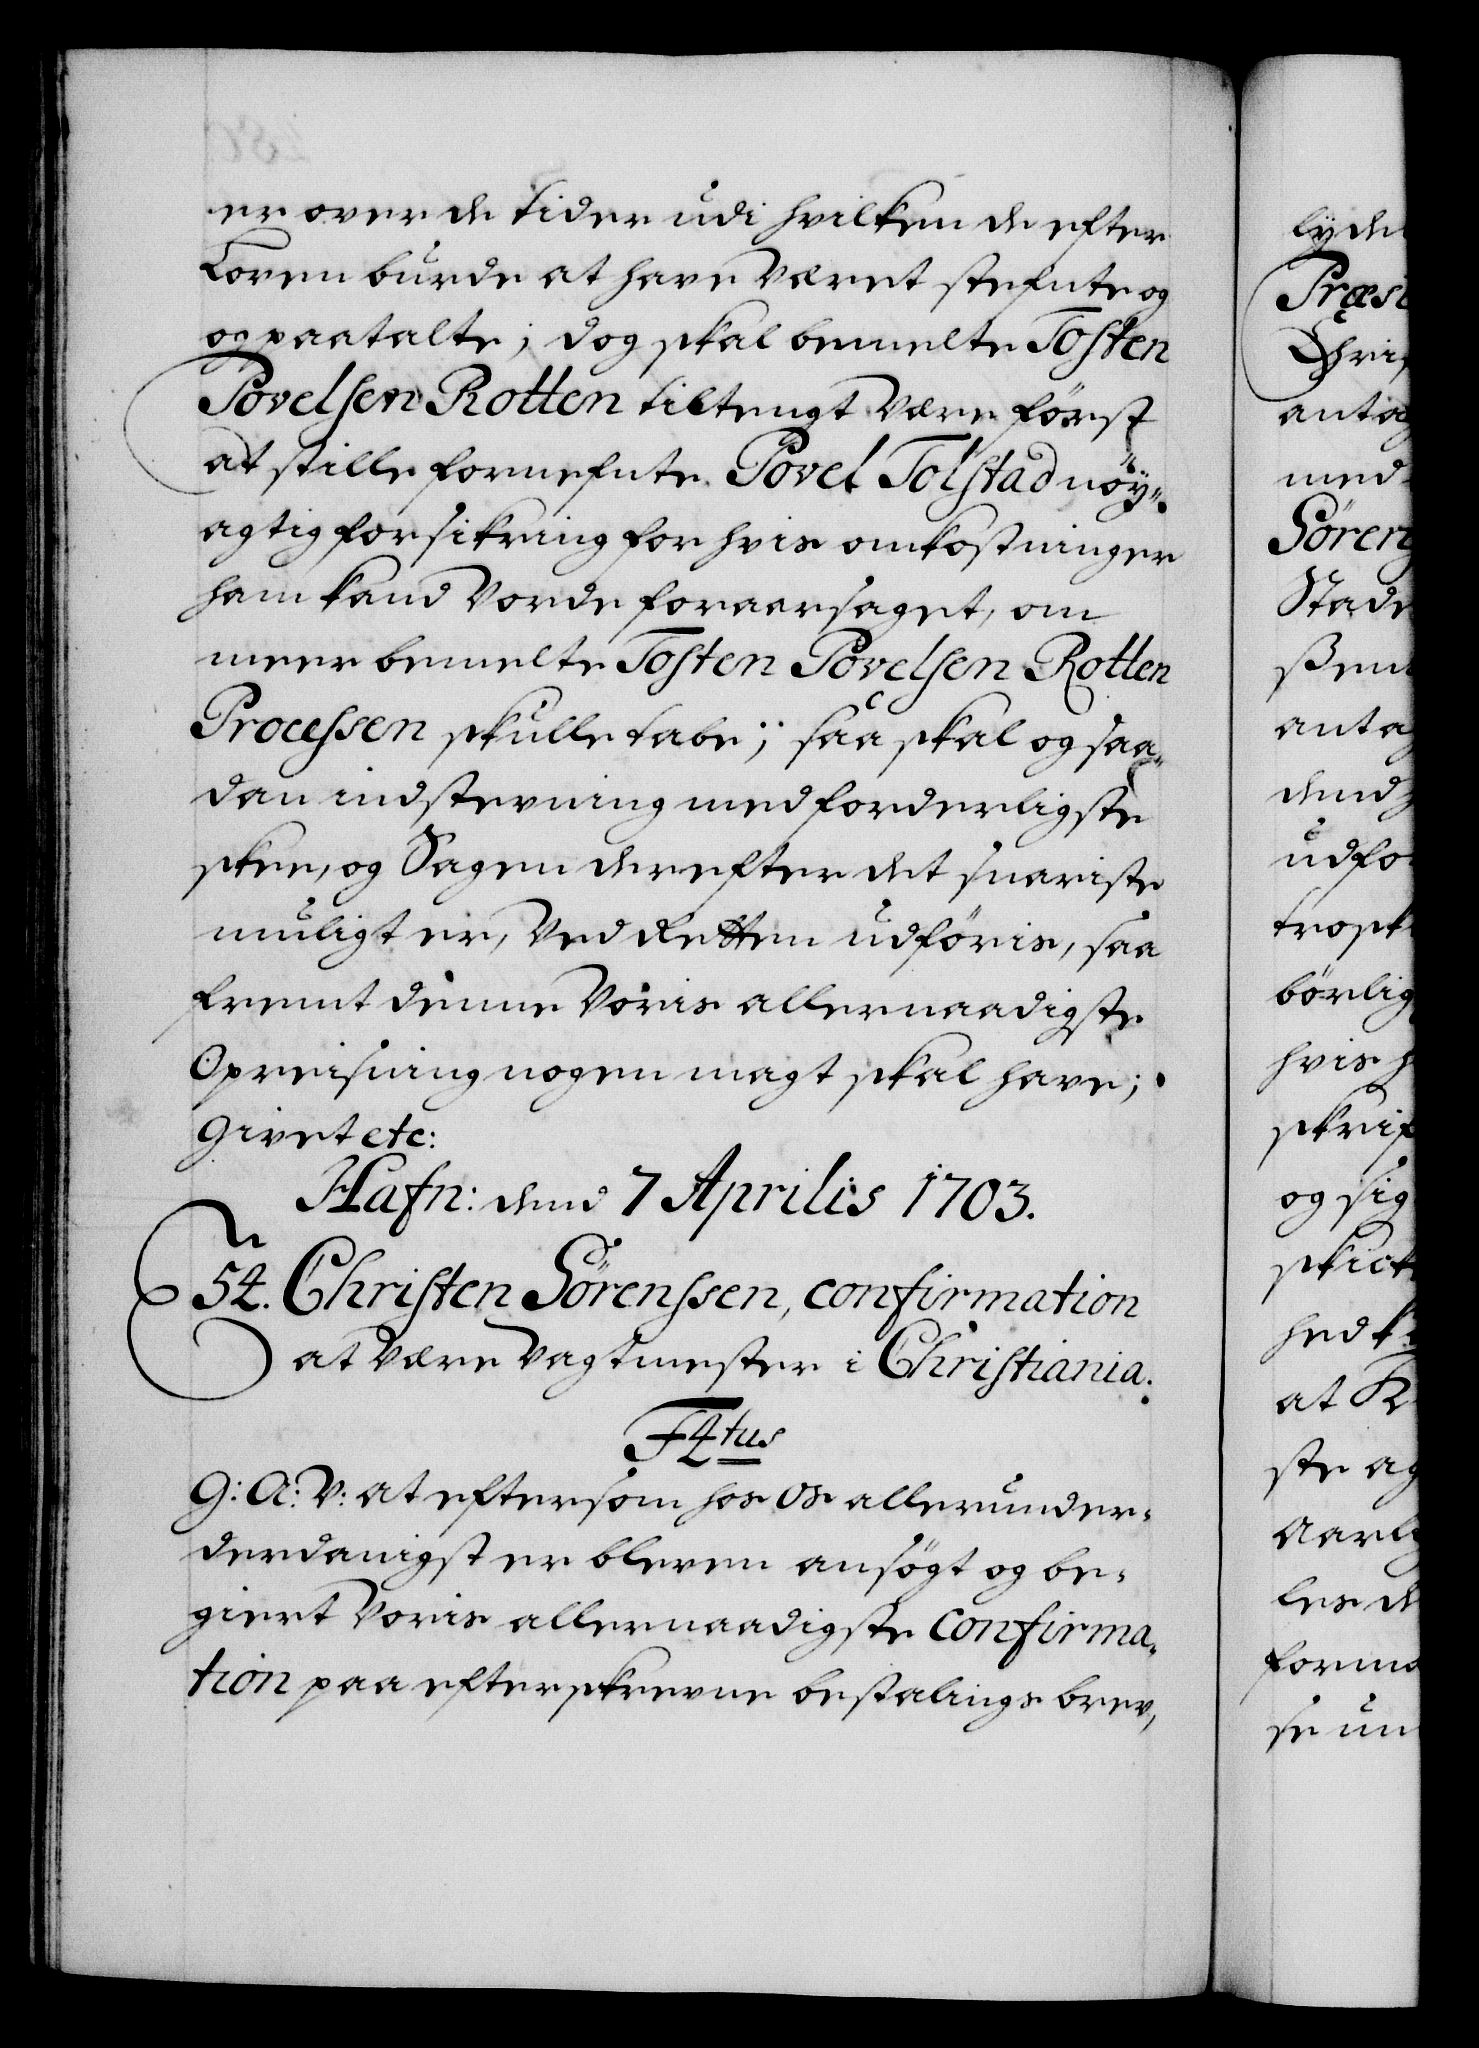 er over de tider udi hvilken de efter
Loven burde at have været stefnte og
og paatalte; dog skal bemelte Tosten
Povelsen Rotten tiltengt være först
at stille fornefnte Povel Tolstad nöy-
agtig forsikring for hvis omkostninger
ham kand vorde foraarsaget, om
meer bemelte Tosten Povelsen Rotten
Processen skulle tabe; saa skal og saa-
dan indstevning med forderligste
skee, og Sagen derefter det snariste
muligt er, ved Retten udföris, saa
fremt denne Voris allernaadigste
Opreisning nogen magt skal have;
Givet etc:
Hafn: dend 7 Aprilis 1703.
54. Christen Sörenssen, confirmation
at være Vagtmester i Christiania.
F4tus
G: A: V: at eftersom hos Os allerunder-
derdanigst er bleven ansögt og be-
giert Voris allernaadigste confirma-
tion paa efterskrevne bestalings brev,
lyde
Præsi
Chris
antag
med
Sören
Stade
ßen
anta
dend
udfo
trosk
börlig
hvis h
skrif
og sig
skick
hed
at K
ste ag
Aarl
les d
forme
se un